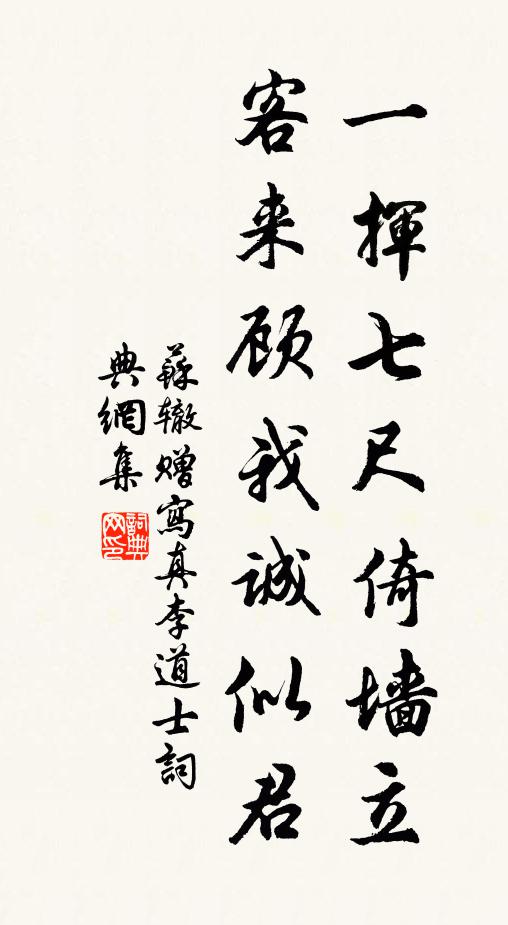 一揮七尺倚墙立
客来顾我誠似君
蘇辙赠寫真李道士詞
典網集
詞典网印